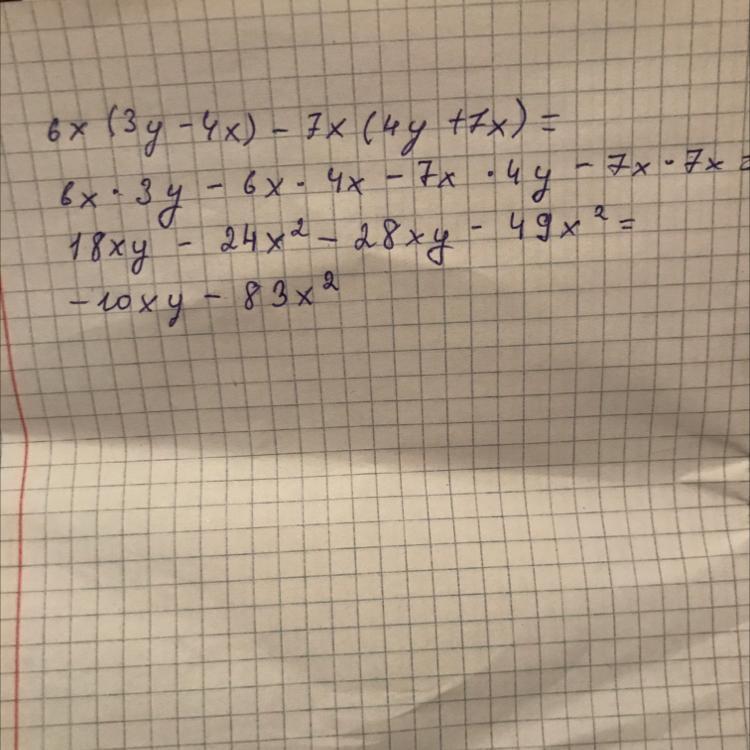 6x (3y - 4x) - 7x (4y + 7x) =
6x · 3y - 6x · 4x - 7x · 4y - 7x · 7x =
18xy - 24x² - 28xy - 49x² =
-10xy - 83x²